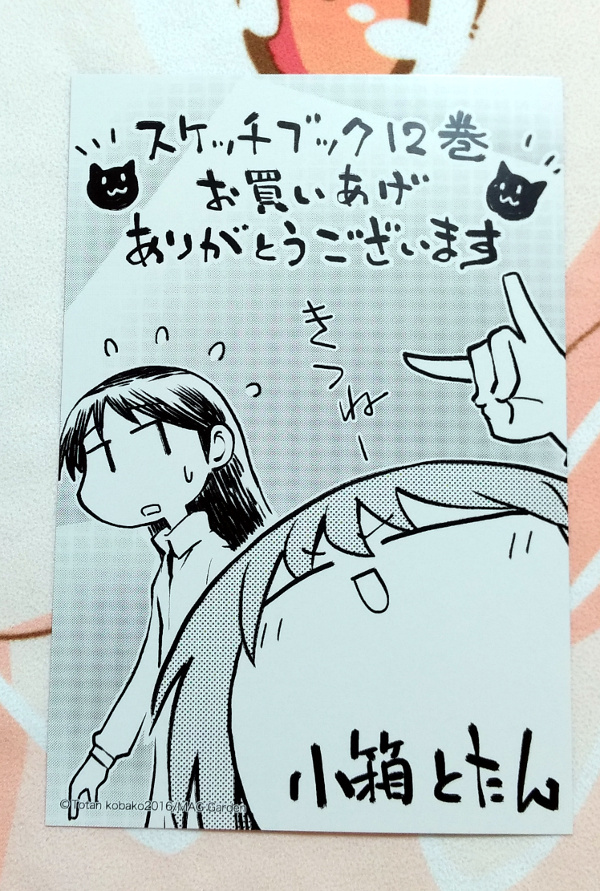 スケッチブック12巻
お買いあげ
ありがとうございます
きつねー
小箱とたん
©Totan kobako2016/MAG Garden